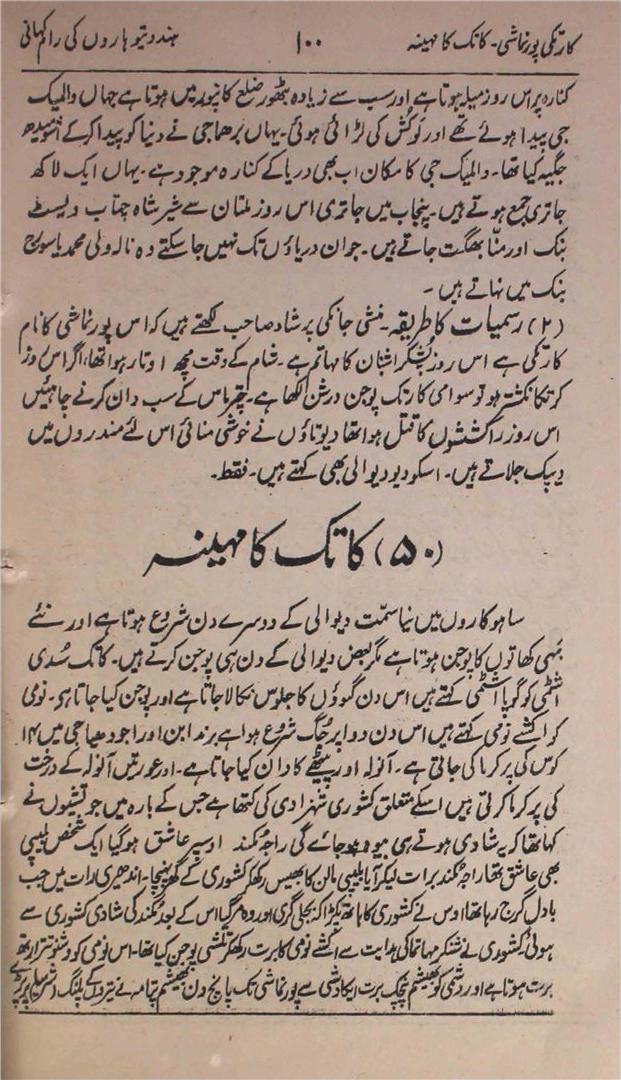 کارتکی پورنماشی۔ کاتک کا مہینہ ۱۰۰ ہندو تیوہاروں کی رام کہانی
کنارہ پر اس روز میلہ ہوتا ہے اور سب سے زیادہ بٹھور ضلع کانپور میں ہوتا ہے جہاں والمیک
جی پیدا ہوئے تھے اور لَوکُش کی لڑائی ہوئی۔ یہاں برھما جی نے دنیا کو پیدا کر کے اشومیدھ
جگیہ کیا تھا۔ والمیک جی کا مکان اب بھی دریا کے کنارہ موجود ہے۔ یہاں ایک لاکھ
جاتری جمع ہوتے ہیں۔ پنجاب میں جاتری اس روز ملتان سے شیر شاہ چناب ویسٹ
بنک اور منّا بھگت جاتے ہیں۔ جو ان دریاؤں تک نہیں جا سکتے وہ نالہ ولی محمد یا سورج
بنک میں نہاتے ہیں۔
(۲) رسمیات کا طریقہ۔ منشی جانکی پرشاد صاحب لکھتے ہیں کہ اس پورنماشی کا نام
کارتکی ہے اس روز پُشکر اشنان کا مہاتم ہے۔ شام کے وقت مچھ اوتار ہوا تھا، اگر اس روز
کرتکا نکشتر ہو تو سوامی کارتک پوجن درشن لکھا ہے۔ چترماس کے سب دان کرنے چاہئیں
اس روز راکششوں کا قتل ہوا تھا دیوتاؤں نے خوشی منائی اس لئے مندروں میں
دیپک جلاتے ہیں۔ اسکو دیو دیوالی بھی کہتے ہیں۔ فقط۔
(۵۰) کاتک کا مہینہ
ساہوکاروں میں نیا سمّت دیوالی کے دوسرے دن شروع ہوتا ہے اور نئے
بہی کھاتوں کا پوجن ہوتا ہے مگر بعض دیوالی کے دن ہی پوجن کرتے ہیں۔ کاتک سُدی
اشٹمی کو گوپا اشٹمی کہتے ہیں اس دن گوؤں کا جلوس نکالا جاتا ہے اور پوجن کیا جاتا ہی۔ نومی
کو اکشے نومی کہتے ہیں اس دن دواپر جُگ شروع ہوا ہے برندابن اور اجودھیا جی میں ۱۴
کوس کی پرکرما کی جاتی ہے۔ آنولہ اور پیٹھے کا دان کیا جاتا ہے۔ اور عورتیں آنولہ کے درخت
کی پرکرما کرتی ہیں اسکے متعلق کشوری شہزادی کی کتھا ہے جس کے بارہ میں جوتشیوں نے
کہا تھا کہ یہ شادی ہوتے ہی بیوہ ہو جائے گی راجہ مُکند اوسپر عاشق ہو گیا ایک شخص بلیپی
بھی عاشق تھا، راجہ مُکند برات لیکر آیا بلیپی مالن کا بھیس رکھکر کشوری کے گھر پہنچا۔ اندھیری رات میں جب
بادل گرج رہا تھا اوس نے کشوری کا ہاتھ پکڑا کہ بجلی گری اور وہ مر گیا اس کے بعد مُکند کی شادی کشوری سے
ہوئی کشوری نے شنکر مہاتما کی ہدایت سے اکشے نومی کا برت رکھکر تلسی پوجن کیا تھا۔ اس نومی کو وشنو ترراتر
برت ہوتا ہے اور دشمی کو بھیشم پنچک برت ایکادشی سے پورنماشی تک پانچ دن بھیشم پتامہ نے تیروں کے پلنگ